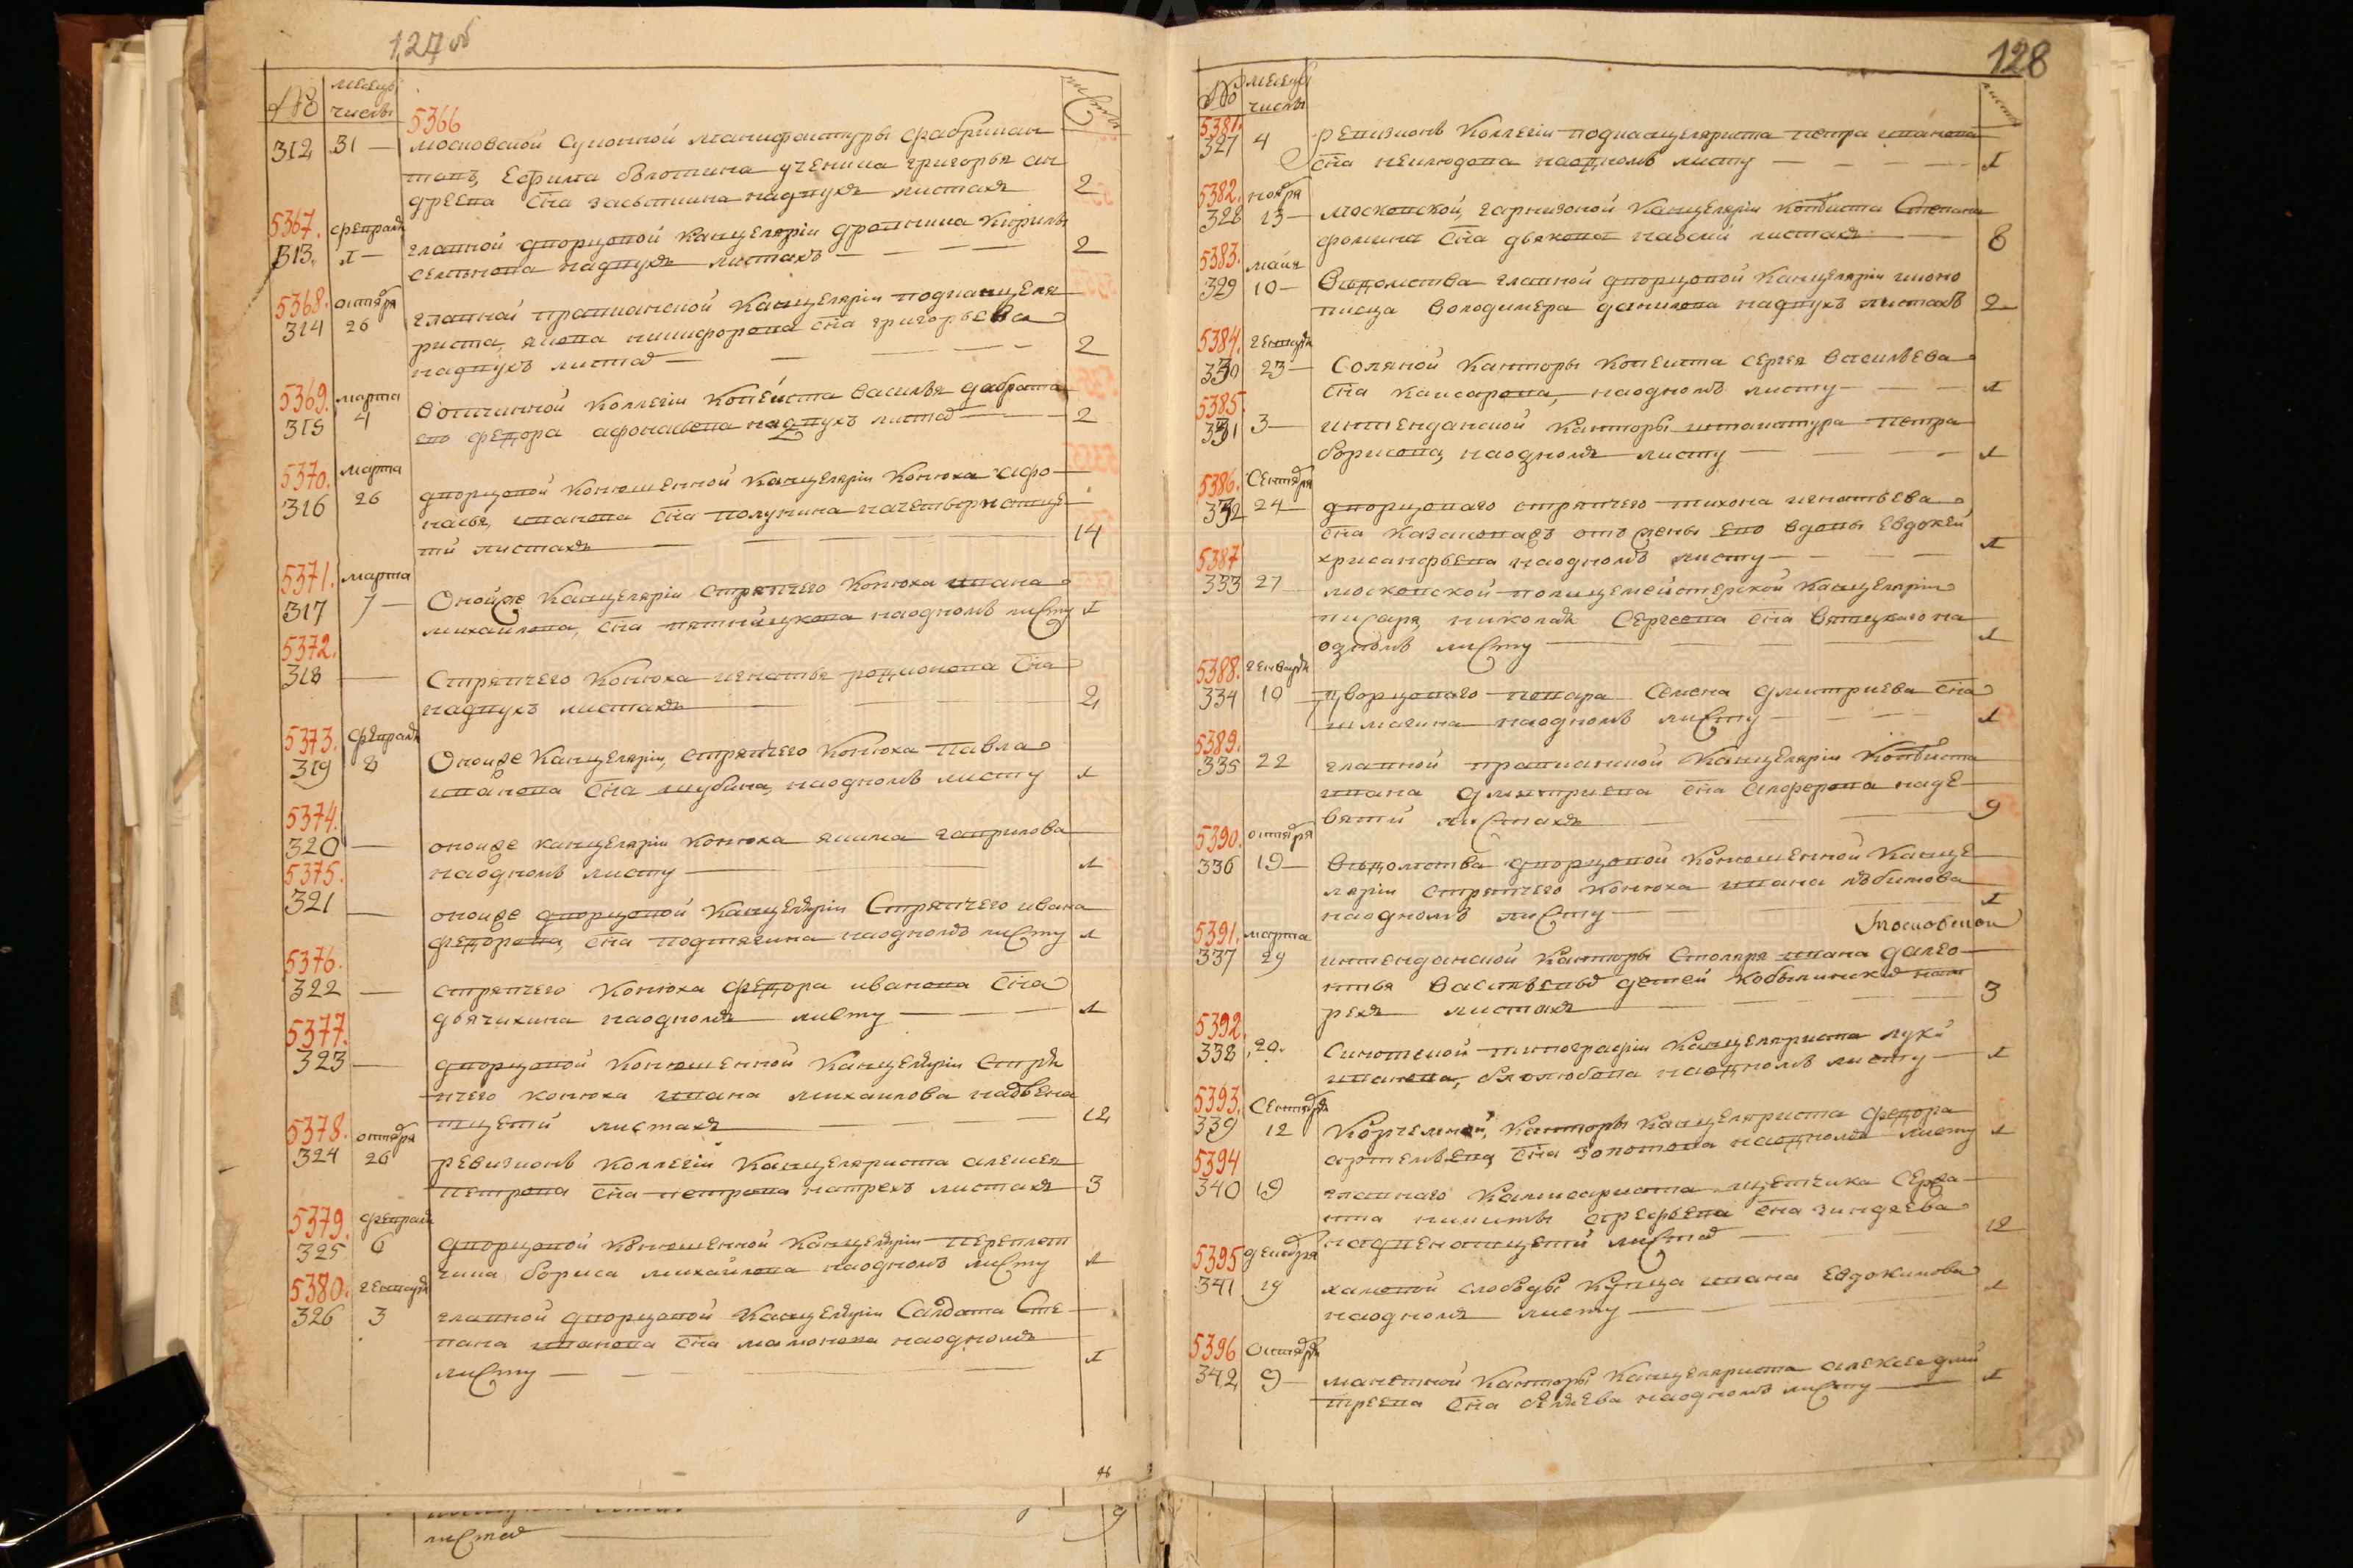 127 об
№
месецы
числы
листы
5366
312 31 — московской суконной манифактуры фабрикан
товъ, Ефима болотина ученика григорья ан
дреева сна надвухъ листахъ 2
5367. февраля
313. 1 — главной дворцовой канцелярiи дровника кирилы
селиванова надвухъ листахъ — 2
5368. октября
314 26 главной правиантской канцелярiи подканцеля
риста якова никифорова сна григорьева
надвухъ листах — 2
5369. марта
315 4 вотчинной коллегiи копеиста василья
ево федора афонасьева надвухъ листах — 2
5370. марта
316 26 дворцовой конюшенной канцелярiи конюха афо
насья, иванова сна полунина начетырнатце
ти листахъ — 14
5371. марта
317 7 — Оной же канцелярiи стряпчего конюха ивана
михаилова, сна пятницкова наодномъ листу 1
5372.
318 — Стряпчего конюха игнатья родионова сна
надвухъ листахъ — 2
5373. февраля
319 8 Оноиже канцелярiи, стряпчего конюха павла
иванова сна шубина, наодномъ листу 1
5374.
320 — оноиже канцелярiи конюха якима гаврилова
наодномъ листу — 1
5375.
321 — оноиже дворцовой канцелярiи стряпчего ивана
федорова, сна подтягина наодномъ листу 1
5376.
322 — стряпчего конюха федора иванова сна
дьячихина наодномъ листу — 1
5377.
323 — дворцовой конюшенной канцелярiи стря
пчего конюха ивана михаилова надвена
тцети листахъ — 12
5378. октября
324 26 ревизионъ коллегiи канцеляриста алексея
петрова сна петрова натрехъ листахъ 3
5379. февраля
325 6 дворцовой конюшенной канцелярiи переплет
чика бориса михайлова наодномъ листу 1
5380. генваря
326 3 главной дворцовой канцелярiи салдата сте
пана иванова сна мамонова наодномъ
листу — 1
128
№
месецы
числы
листы
5381.
327 4 ревизионъ коллегiи подканцеляриста петра иванова
сна неклюдова наодномъ листу — 1
5382. ноября
328 13 — московской гарнизоной канцелярiи копеиста степана
фомина сна дьякова навосми листахъ — 8
5383. майя
329 10 — Ведомства главной дворцовой канцелярiи иконо
писца володимера данилова надвухъ листахъ 2
5384. генваря
330 23 — Соляной канторы копеиста сергея васильева
сна каисарова, наодномъ листу — 1
5385.
331 3 — интенданской канторы петра
борисова, наодномъ листу — 1
5386. сентября
332 24 — дворцоваго стряпчего тихона игнатьева
сна отъ жены ево вдовы евдокеи
хрисанфьева наодномъ листу — 1
5387
333 27 московской полицемейстерской канцелярiи
писаря николая сергеева сна вятцкаго на
одномъ листу — 1
5388. генваря
334 10 дворцоваго повара семена дмитриева сна
шмагина наодномъ листу — 1
5389.
335 22 главной правианской канцелярiи копеиста
ивана дмитриева сна алферова наде
вяти листахъ — 9
5390. октября
336 19 — Ведомства дворцовой конюшенной канце
лярiи стряпчего конюха ивана любимова
наодномъ листу — 1
московской
5391. марта
337 29 интенданской канторы столяра ивана далео
нтья васильевых детей кобылинских нат
рехъ листахъ — 3
5392.
338 29. Синотской типографiи канцеляриста луки
иванова, наодномъ листу — 1
5393. сентября
339 12 Корчемной, канторы канцеляриста федора
артемьева, сна золотова наодномъ листу 1
5394
340 19 главнаго камисариата сержа
нта никиты арефьева сна зиндяева
надвенатцети листах 12
5395 декабря
341 19 хамовой слободы купца ивана евдокимова
наодномъ листу — 1
5396 октября
342 9 — манетной канторы канцеляриста алексея дми
треева сна беляева наодномъ листу — 1
листах
9